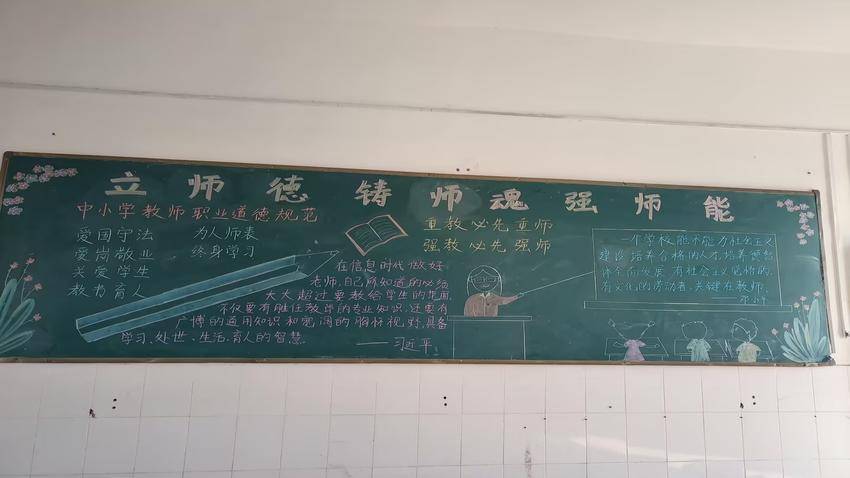 立师德 铸师魂 强师能
中小学教师职业道德规范
爱国守法 为人师表
爱岗敬业 终身学习
关爱学生
教书育人
在信息时代做好
老师,自己所知道的必须
大大超过要教给学生的范围,
不仅要有胜任教学的专业知识,还要有
广博的通用知识和宽阔的胸怀视野,具备
学习、处世、生活、育人的智慧.
——习近平
重教必先重师
强教必先强师
一个学校能不能为社会主义
建设培养合格的人才,培养德智
体全面发展、有社会主义觉悟的,
有文化的劳动者,关键在教师.
——邓小平